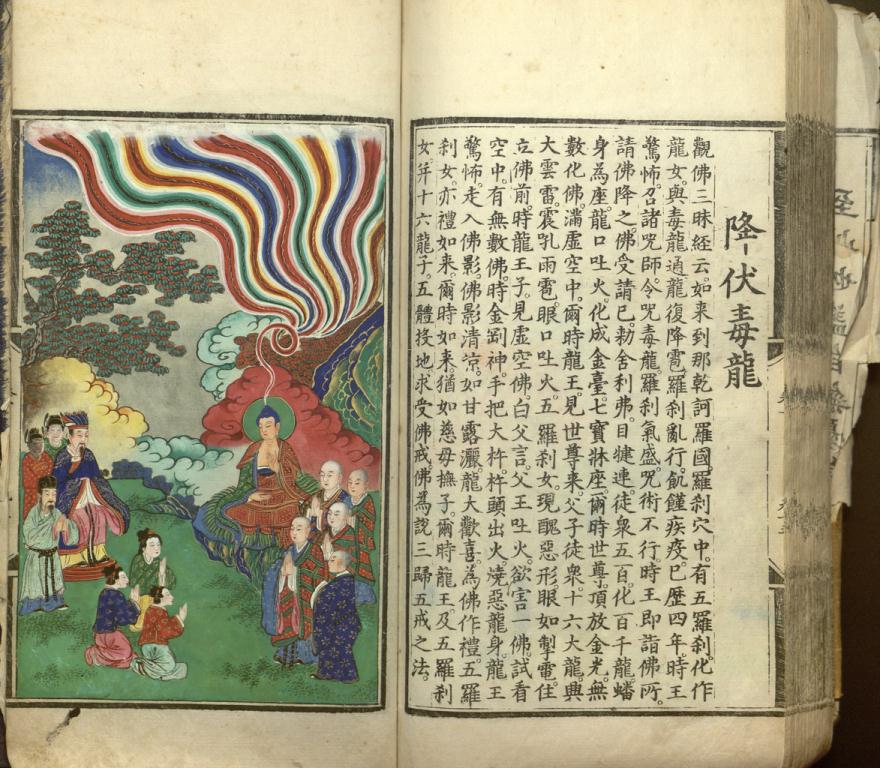 降伏毒龍
觀佛三昧經云。如来到那乾訶羅國。羅刹穴中。有五羅刹。化作
龍女。與毒龍通。龍復降雹。羅刹亂行。飢饉疾疫。已歷四年。時王
驚怖。召諸咒師。令咒毒龍。羅刹氣盛。咒術不行。時王即詣佛所。
請佛降之。佛受請已。勑舍利弗。目犍連。徒衆五百。化百千龍。蟠
身為座。龍口吐火。化成金臺。七寶牀座。爾時世尊。頂放金光。無
數化佛。滿虛空中。爾時龍王。見世尊来。父子徒衆。十六大龍。興
大雲雷。震乳雨雹。眼口吐火。五羅刹女。現醜惡形。眼如掣電。住
立佛前。時龍王子。見虛空佛。白父言。父王吐火。欲害一佛。試看
空中。有無數佛。時金剛神。手把大杵。杵頭出火。燒惡龍身。龍王
驚怖。走入佛影。佛影清凉。如甘露灑。龍大歡喜。為佛作禮。五羅
刹女。亦禮如来。爾時如来。猶如慈母撫子。爾時龍王。及五羅刹
女。并十六龍子。五體投地。求受佛戒。佛為説三歸五戒之法。